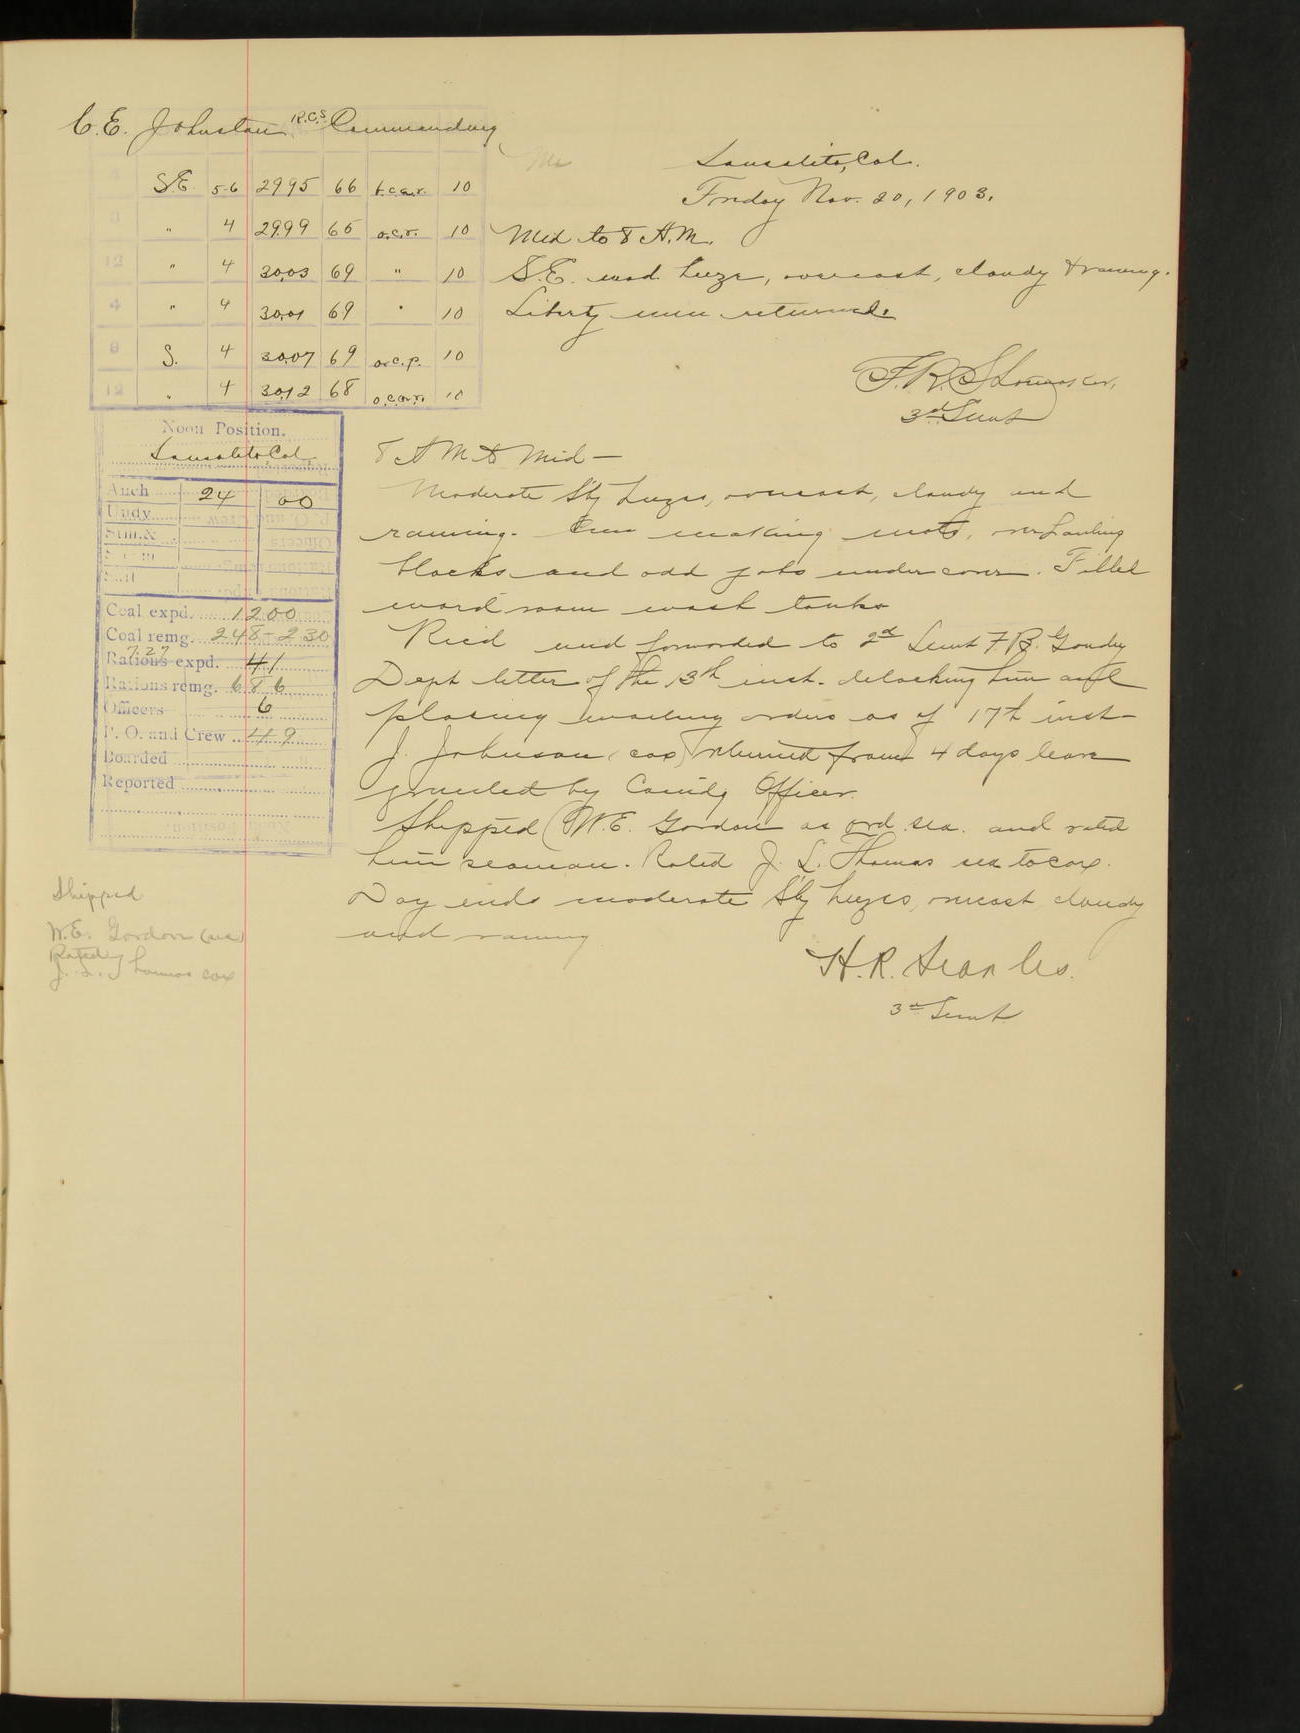 C. E. Johnston R.C.S. Commanding
Sausalito, Cal.
Friday Nov. 20, 1903.
4 S.E. 5-6 29.95 66 10
8 " 4 29.99 65 o.c.r. 10
12 " 4 30.03 69 " 10
4 " 4 30.01 69 " 10
8 S. 4 30.07 69 o.c.p. 10
12 " 4 30.12 68 10
Mid to 8 A.M.
S.E. mod. breeze, overcast, cloudy & raining.
Liberty men returned.
3rd Lieut
Noon Position.
Sausalito Cal
Anch 24 00
Undy
Stm. &
Steam
Sail
Coal expd. 1200
Coal remg. 248-230
727
Rations expd. 41
Rations remg. 686
Officers 6
P. O. and Crew 49
Boarded
Reported
8 A M to Mid —
Moderate S'ly breezes, overcast, cloudy and
raining. Crew making mats, overhauling
blocks and odd jobs under cover. Filled
ward room wash tanks
Rec'd and forwarded to 2nd Lieut F. B. Goudey
Dept letter of the 13th inst. detaching him and
placing waiting orders as of 17th inst
J. Johnson (cox) returned from 4 days leave
granted by Comdg Officer.
Shipped W. E. Gordon as ord. sea. and rated
him seaman. Rated J. L. Thomas sea to cox.
Day ends moderate S'ly breezes, overcast cloudy
and raining
H. R. Searles.
3rd Lieut
Shipped
W. E. Gordon (sea)
Rated
J. L. Thomas cox